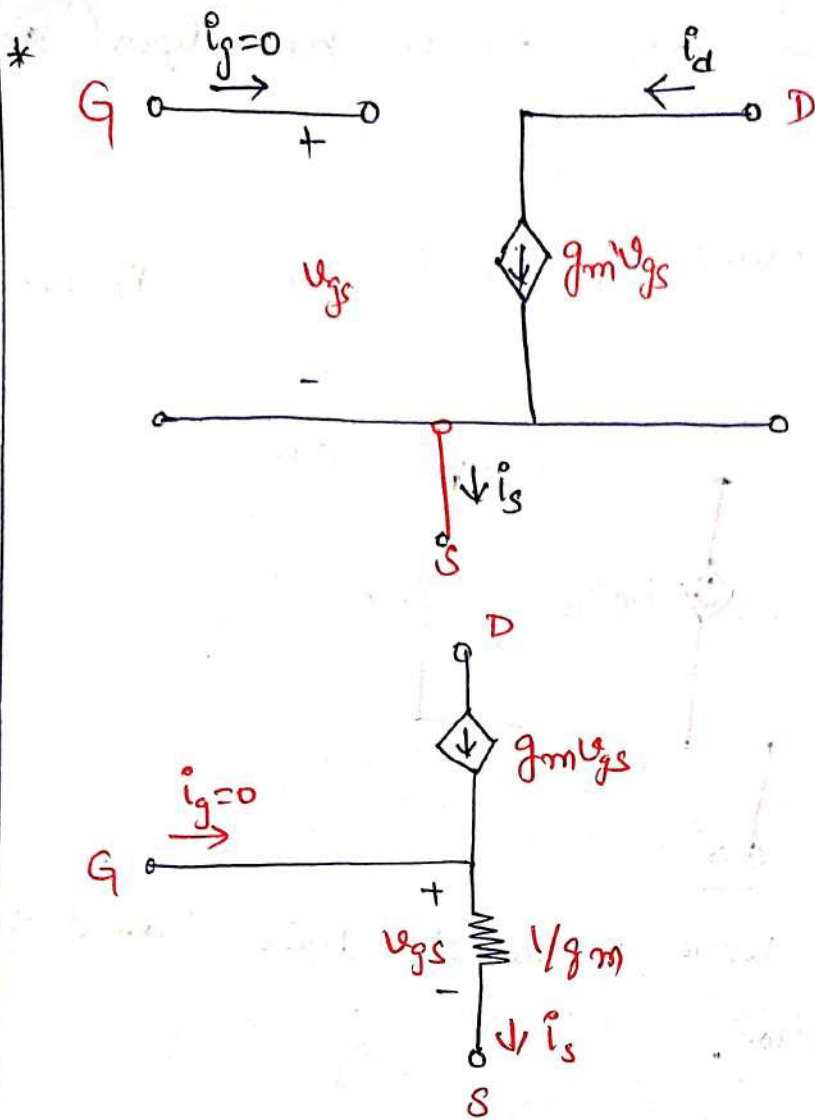 *
i_g=0
i_d
G
D
+
v_gs
g_m v_gs
-
i_s
S
D
g_m v_gs
i_g=0
G
+
v_gs
1/g_m
-
i_s
S